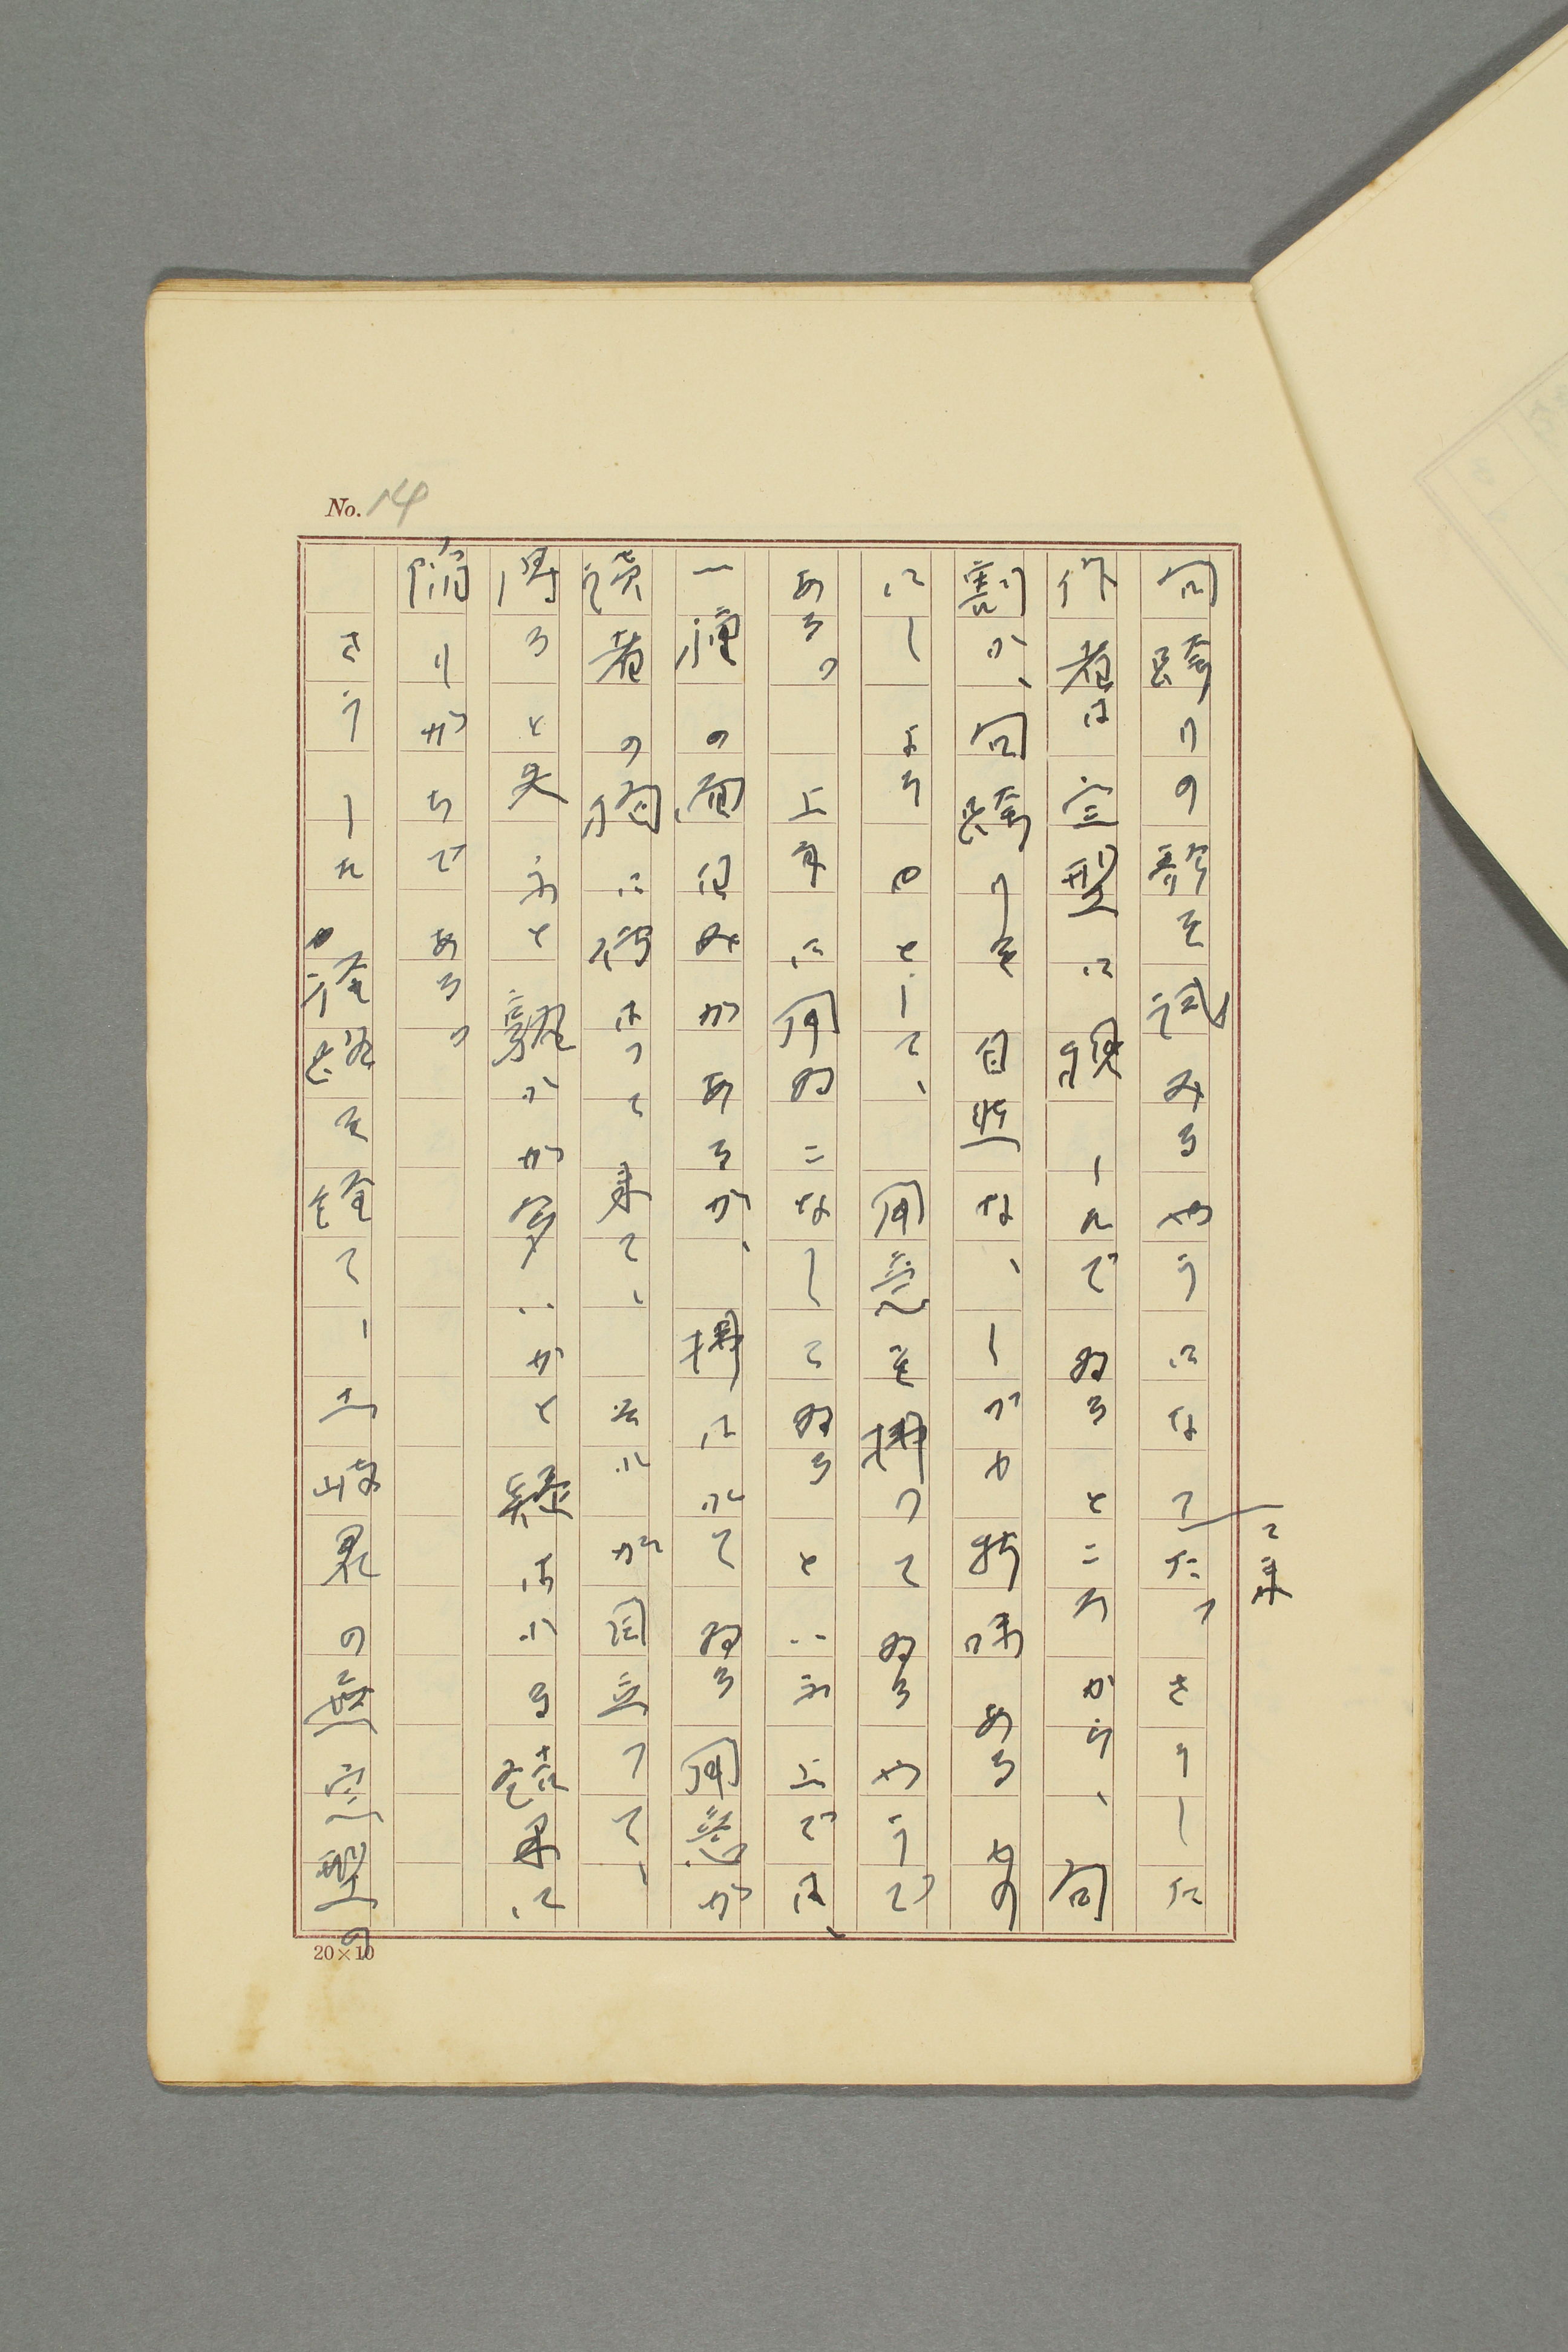 No. 14
句跨りの歌を試みるやうになつて来た。さうした
作者は定型に親しんでゐるところから、句
割れ、句跨りを自然な、しかも持味あるもの
にしようとして、用意を拂つてゐるやうで
ある。上手に用ゐこなしてゐるといふ上では、
一種の面白みがあるが、拂はれてゐる用意が
讀者の胸に傳はつて来て、それが目立つて、
得ると失ふと孰れが多いかと疑はれる結果に
陥りがちである。
さうした徑路を經て、土岐君の
20×10